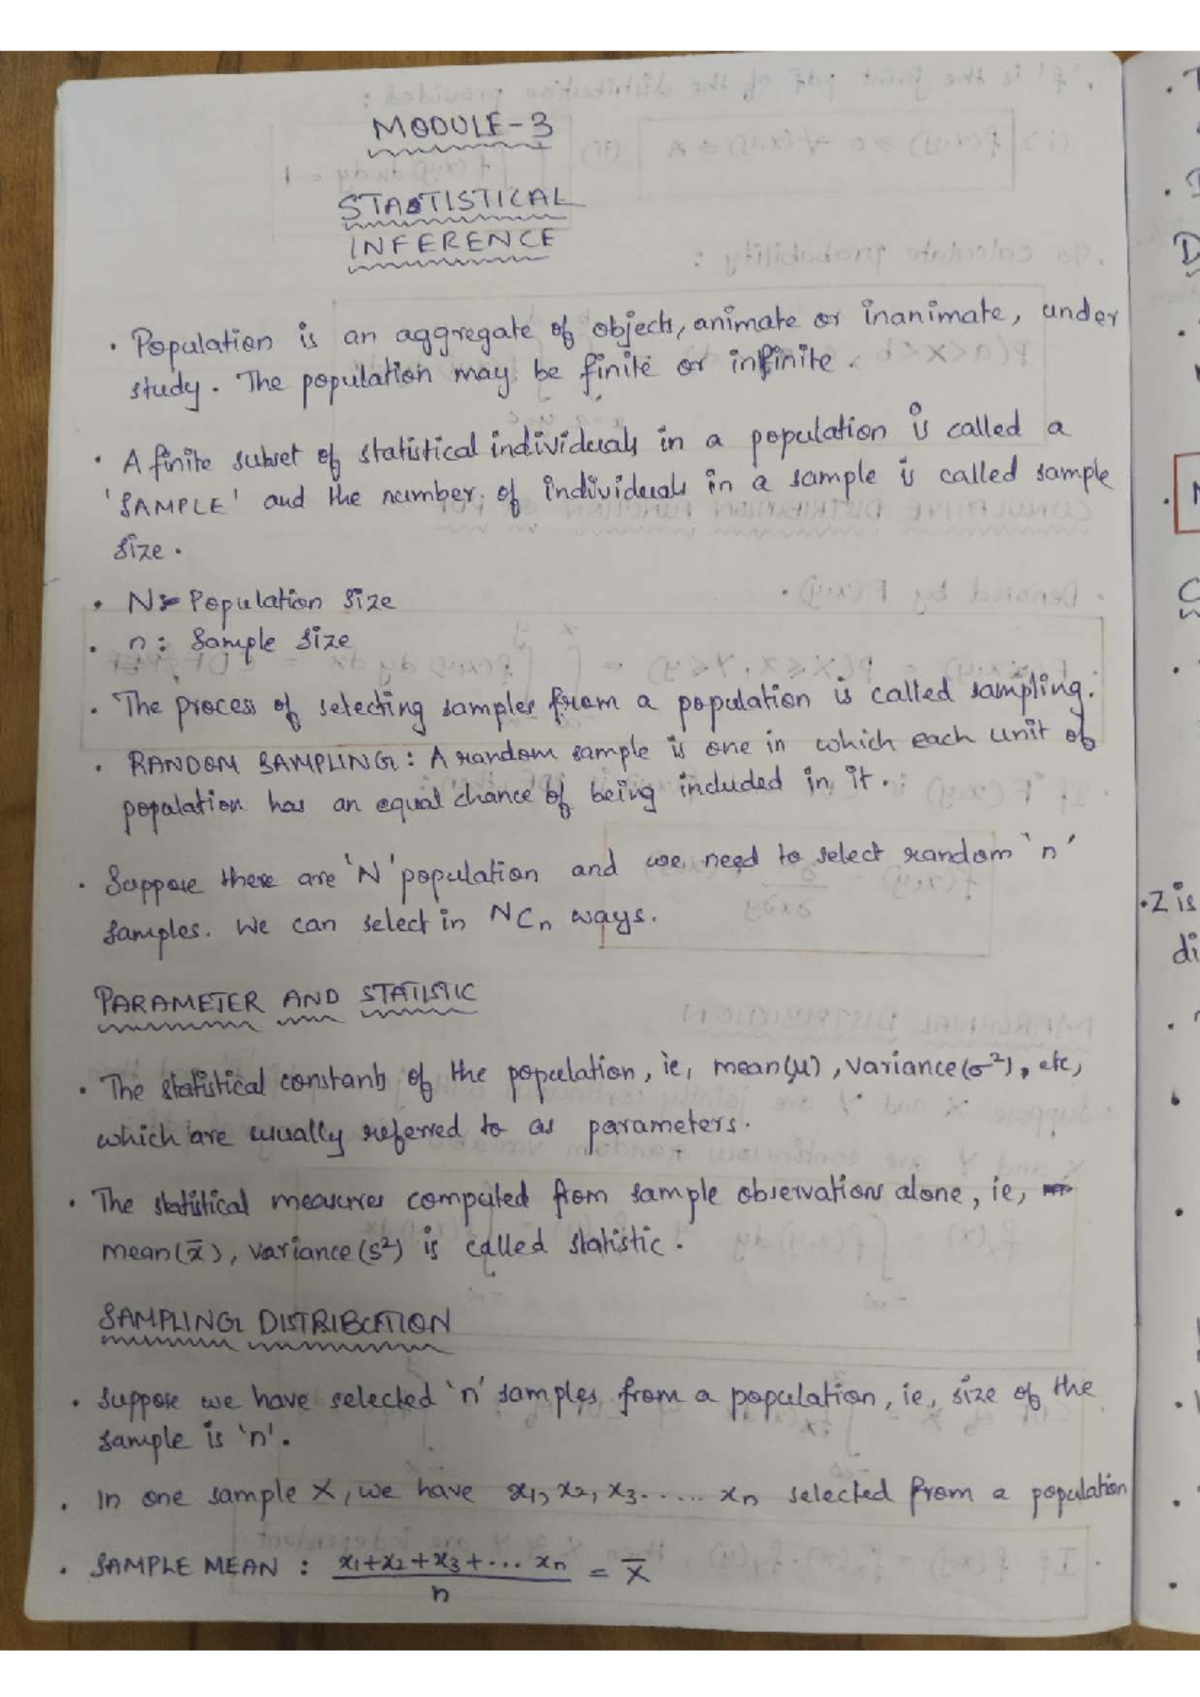 MODULE-3
STATISTICAL
INFERENCE
• Population is an aggregate of objects, animate or inanimate, under
study. The population may be finite or infinite.
• A finite subset of statistical individuals in a population is called a
'SAMPLE' and the number of individuals in a sample is called sample
size.
• N: Population size
• n: Sample size
• The process of selecting samples from a population is called sampling.
• RANDOM SAMPLING: A random sample is one in which each unit of
population has an equal chance of being included in it.
• Suppose there are 'N' population and we need to select random 'n'
samples. We can select in NCn ways.
PARAMETER AND STATISTIC
• The statistical constants of the population, ie, mean(μ), variance(σ²), etc,
which are usually referred to as parameters.
• The statistical measures computed from sample observations alone, ie,
mean(x̄), variance(s²) is called statistic.
SAMPLING DISTRIBUTION
• Suppose we have selected 'n' samples from a population, ie, size of the
sample is 'n'.
• In one sample X, we have x₁, x₂, x₃...... xn selected from a population
• SAMPLE MEAN : x₁+x₂+x₃+... xn / n = X̄
• Z is
di